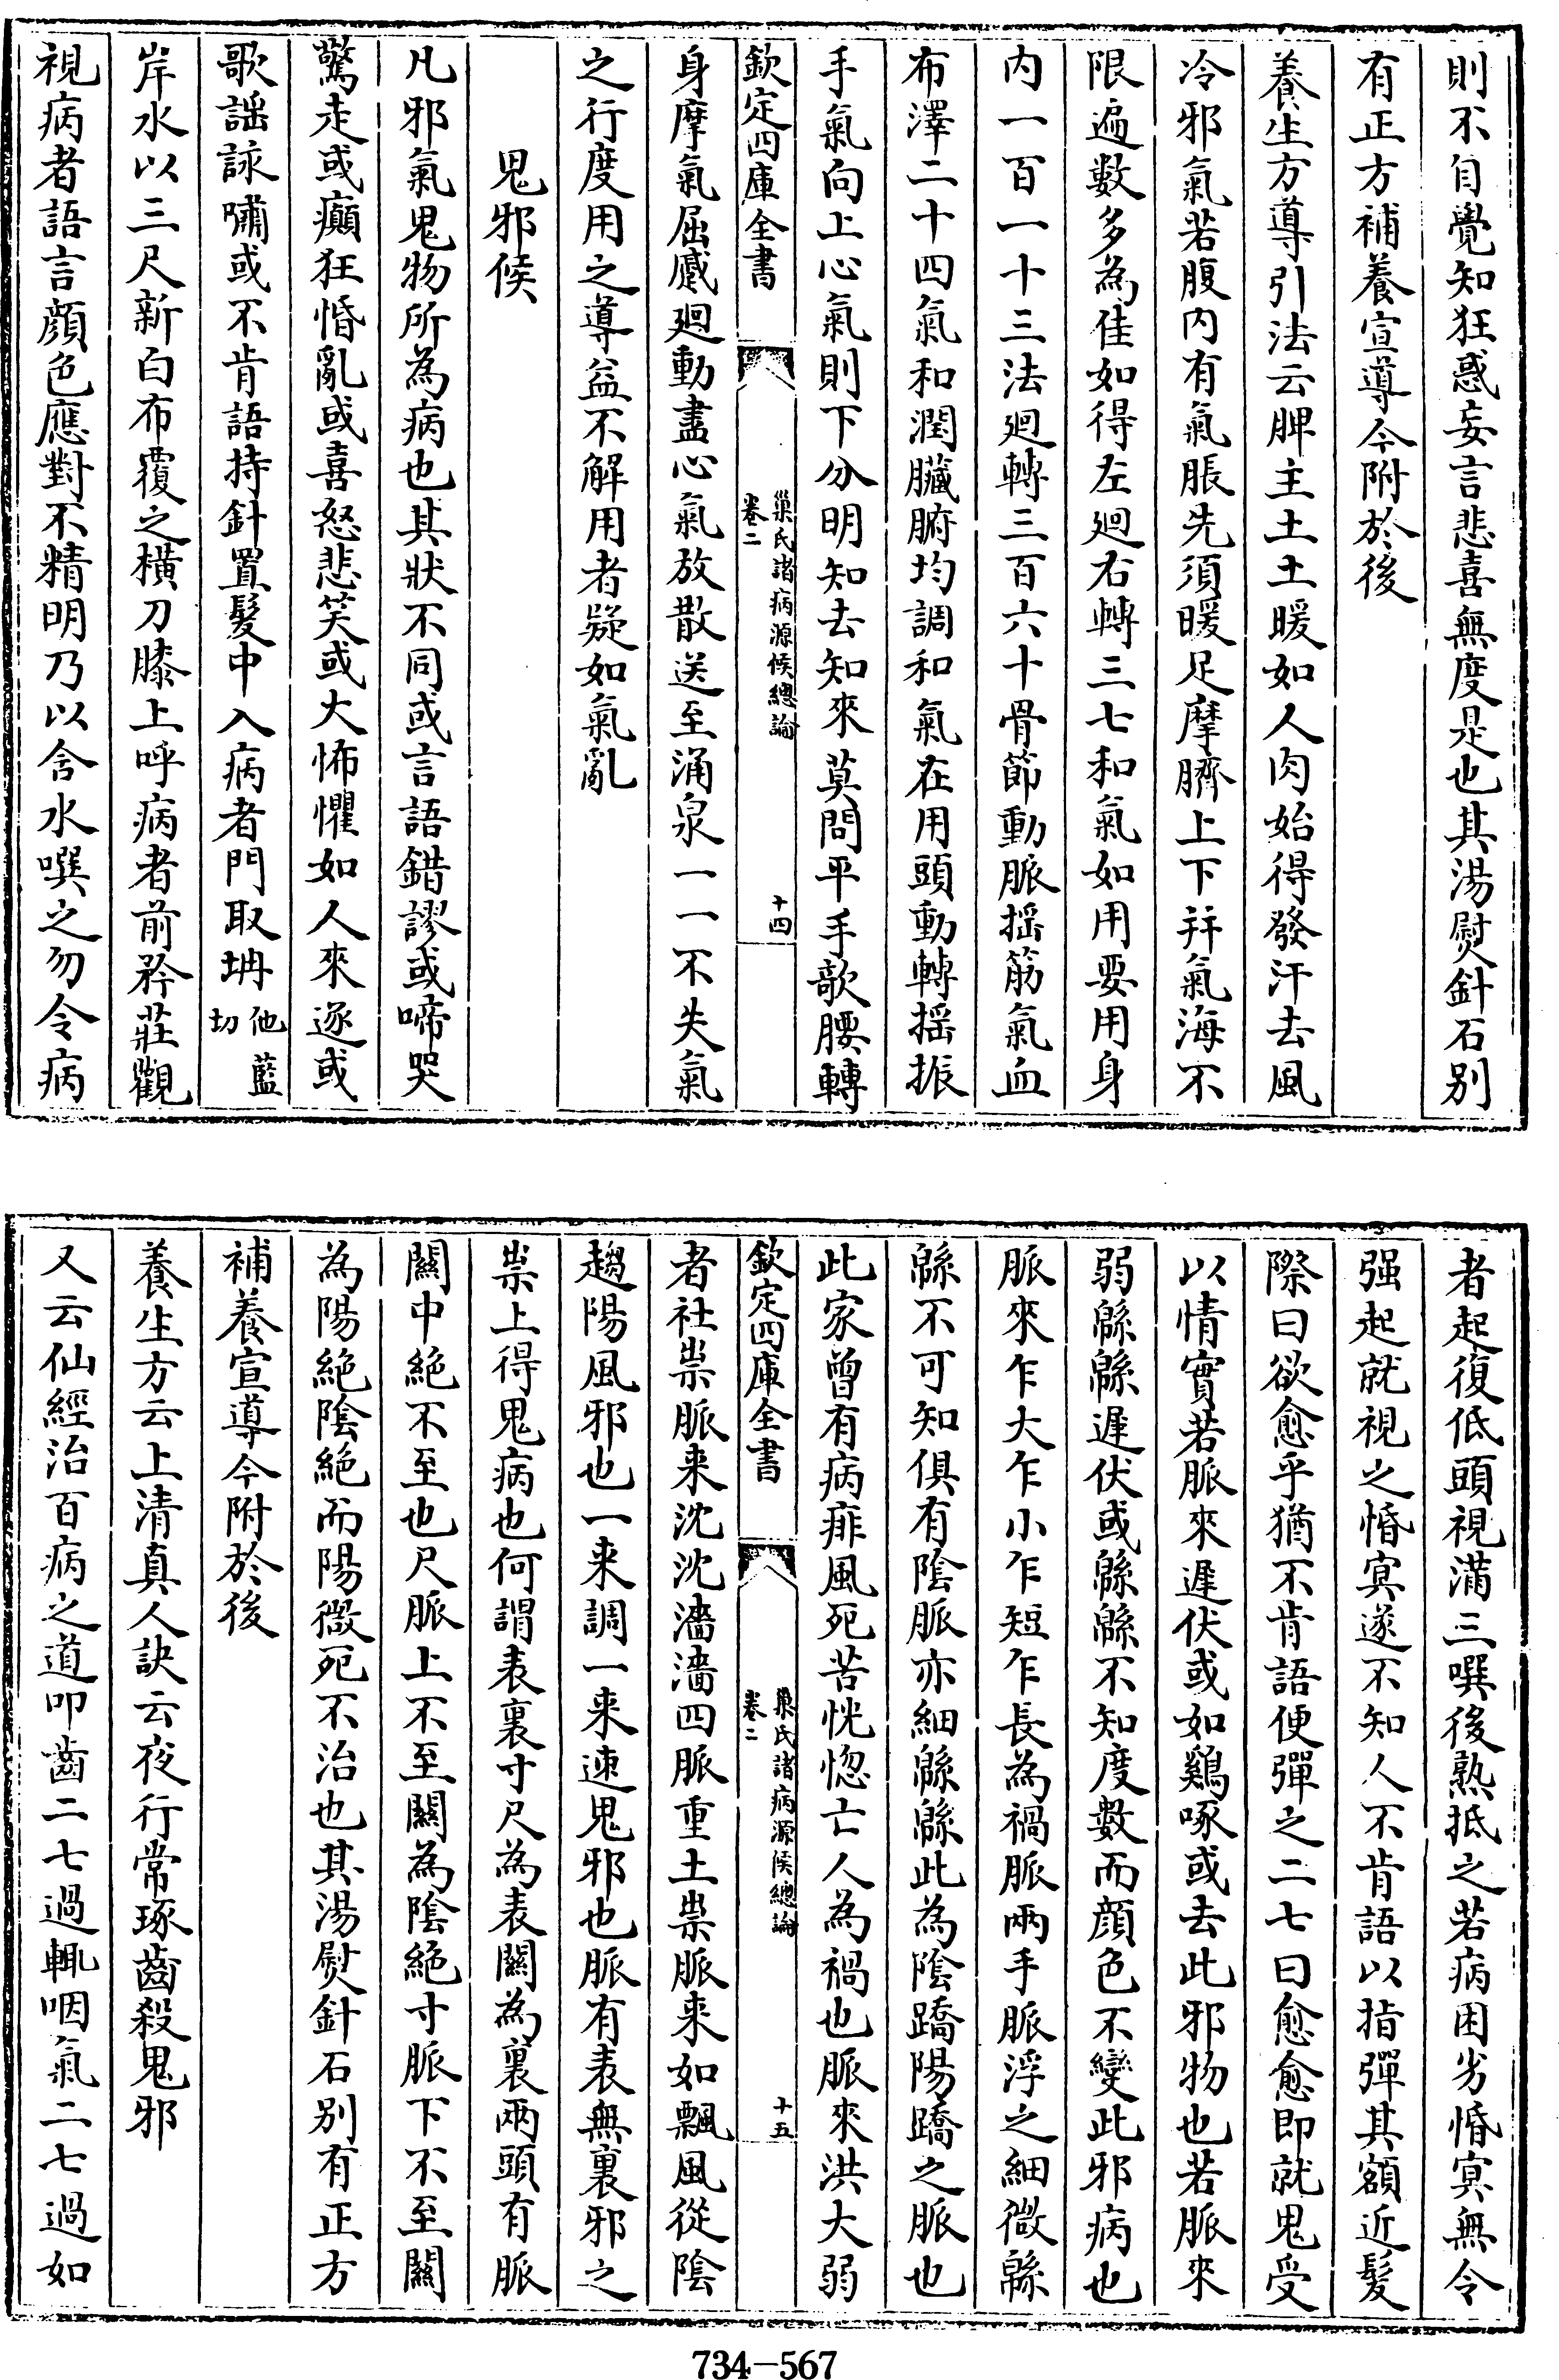 則不自覺知狂惑妄言悲喜無度是也其湯熨針石别
有正方補養宣導今附於後
養生方導引法云脾主土土暖如人肉始得發汗去風
冷邪氣若腹内有氣脹先須暖足摩臍上下并氣海不
限遍數多為佳如得左廻右轉三七和氣如用要用身
内一百一十三法廻轉三百六十骨節動脈揺筋氣血
布澤二十四氣和潤臓腑均調和氣在用頭動轉揺振
手氣向上心氣則下分明知去知來莫問平手欹腰轉
欽定四庫全書
巢氏諸病源候總論
卷二
十四
身摩氣屈蹙廻動盡心氣放散送至涌泉一一不失氣
之行度用之導益不解用者疑如氣亂
鬼邪候
凡邪氣鬼物所為病也其狀不同或言語錯謬或啼哭
驚走或癲狂惛亂或喜怒悲笑或大怖懼如人來逐或
歌謡詠嘯或不肯語持針置髮中入病者門取坍他藍切
岸水以三尺新白布覆之横刀膝上呼病者前矜莊觀
視病者語言顔色應對不精明乃以含水噀之勿令病
者起復低頭視滿三噀後熟抵之若病困劣惛冥無令
强起就視之惛冥遂不知人不肯語以指彈其額近髮
際曰欲愈乎猶不肯語便彈之二七曰愈愈即就鬼受
以情實若脈來遲伏或如鷄啄或去此邪物也若脈來
弱緜緜遲伏或緜緜不知度數而顔色不變此邪病也
脈來乍大乍小乍短乍長為禍脈兩手脈浮之細微緜
緜不可知俱有陰脈亦細緜緜此為陰蹻陽蹻之脈也
此家曾有病痱風死苦恍惚亡人為禍也脈來洪大弱
欽定四庫全書
巢氏諸病源候總論
卷二
十五
者社祟脈来沈沈濇濇四脈重土祟脈来如飄風從陰
趨陽風邪也一来調一来速鬼邪也脈有表無裏邪之
祟上得鬼病也何謂表裏寸尺為表關為裏兩頭有脈
關中絶不至也尺脈上不至關為陰絶寸脈下不至關
為陽絶陰絶而陽微死不治也其湯熨針石别有正方
補養宣導今附於後
養生方云上清真人訣云夜行常琢齒殺鬼邪
又云仙經治百病之道叩齒二七過輒咽氣二七過如
734—567